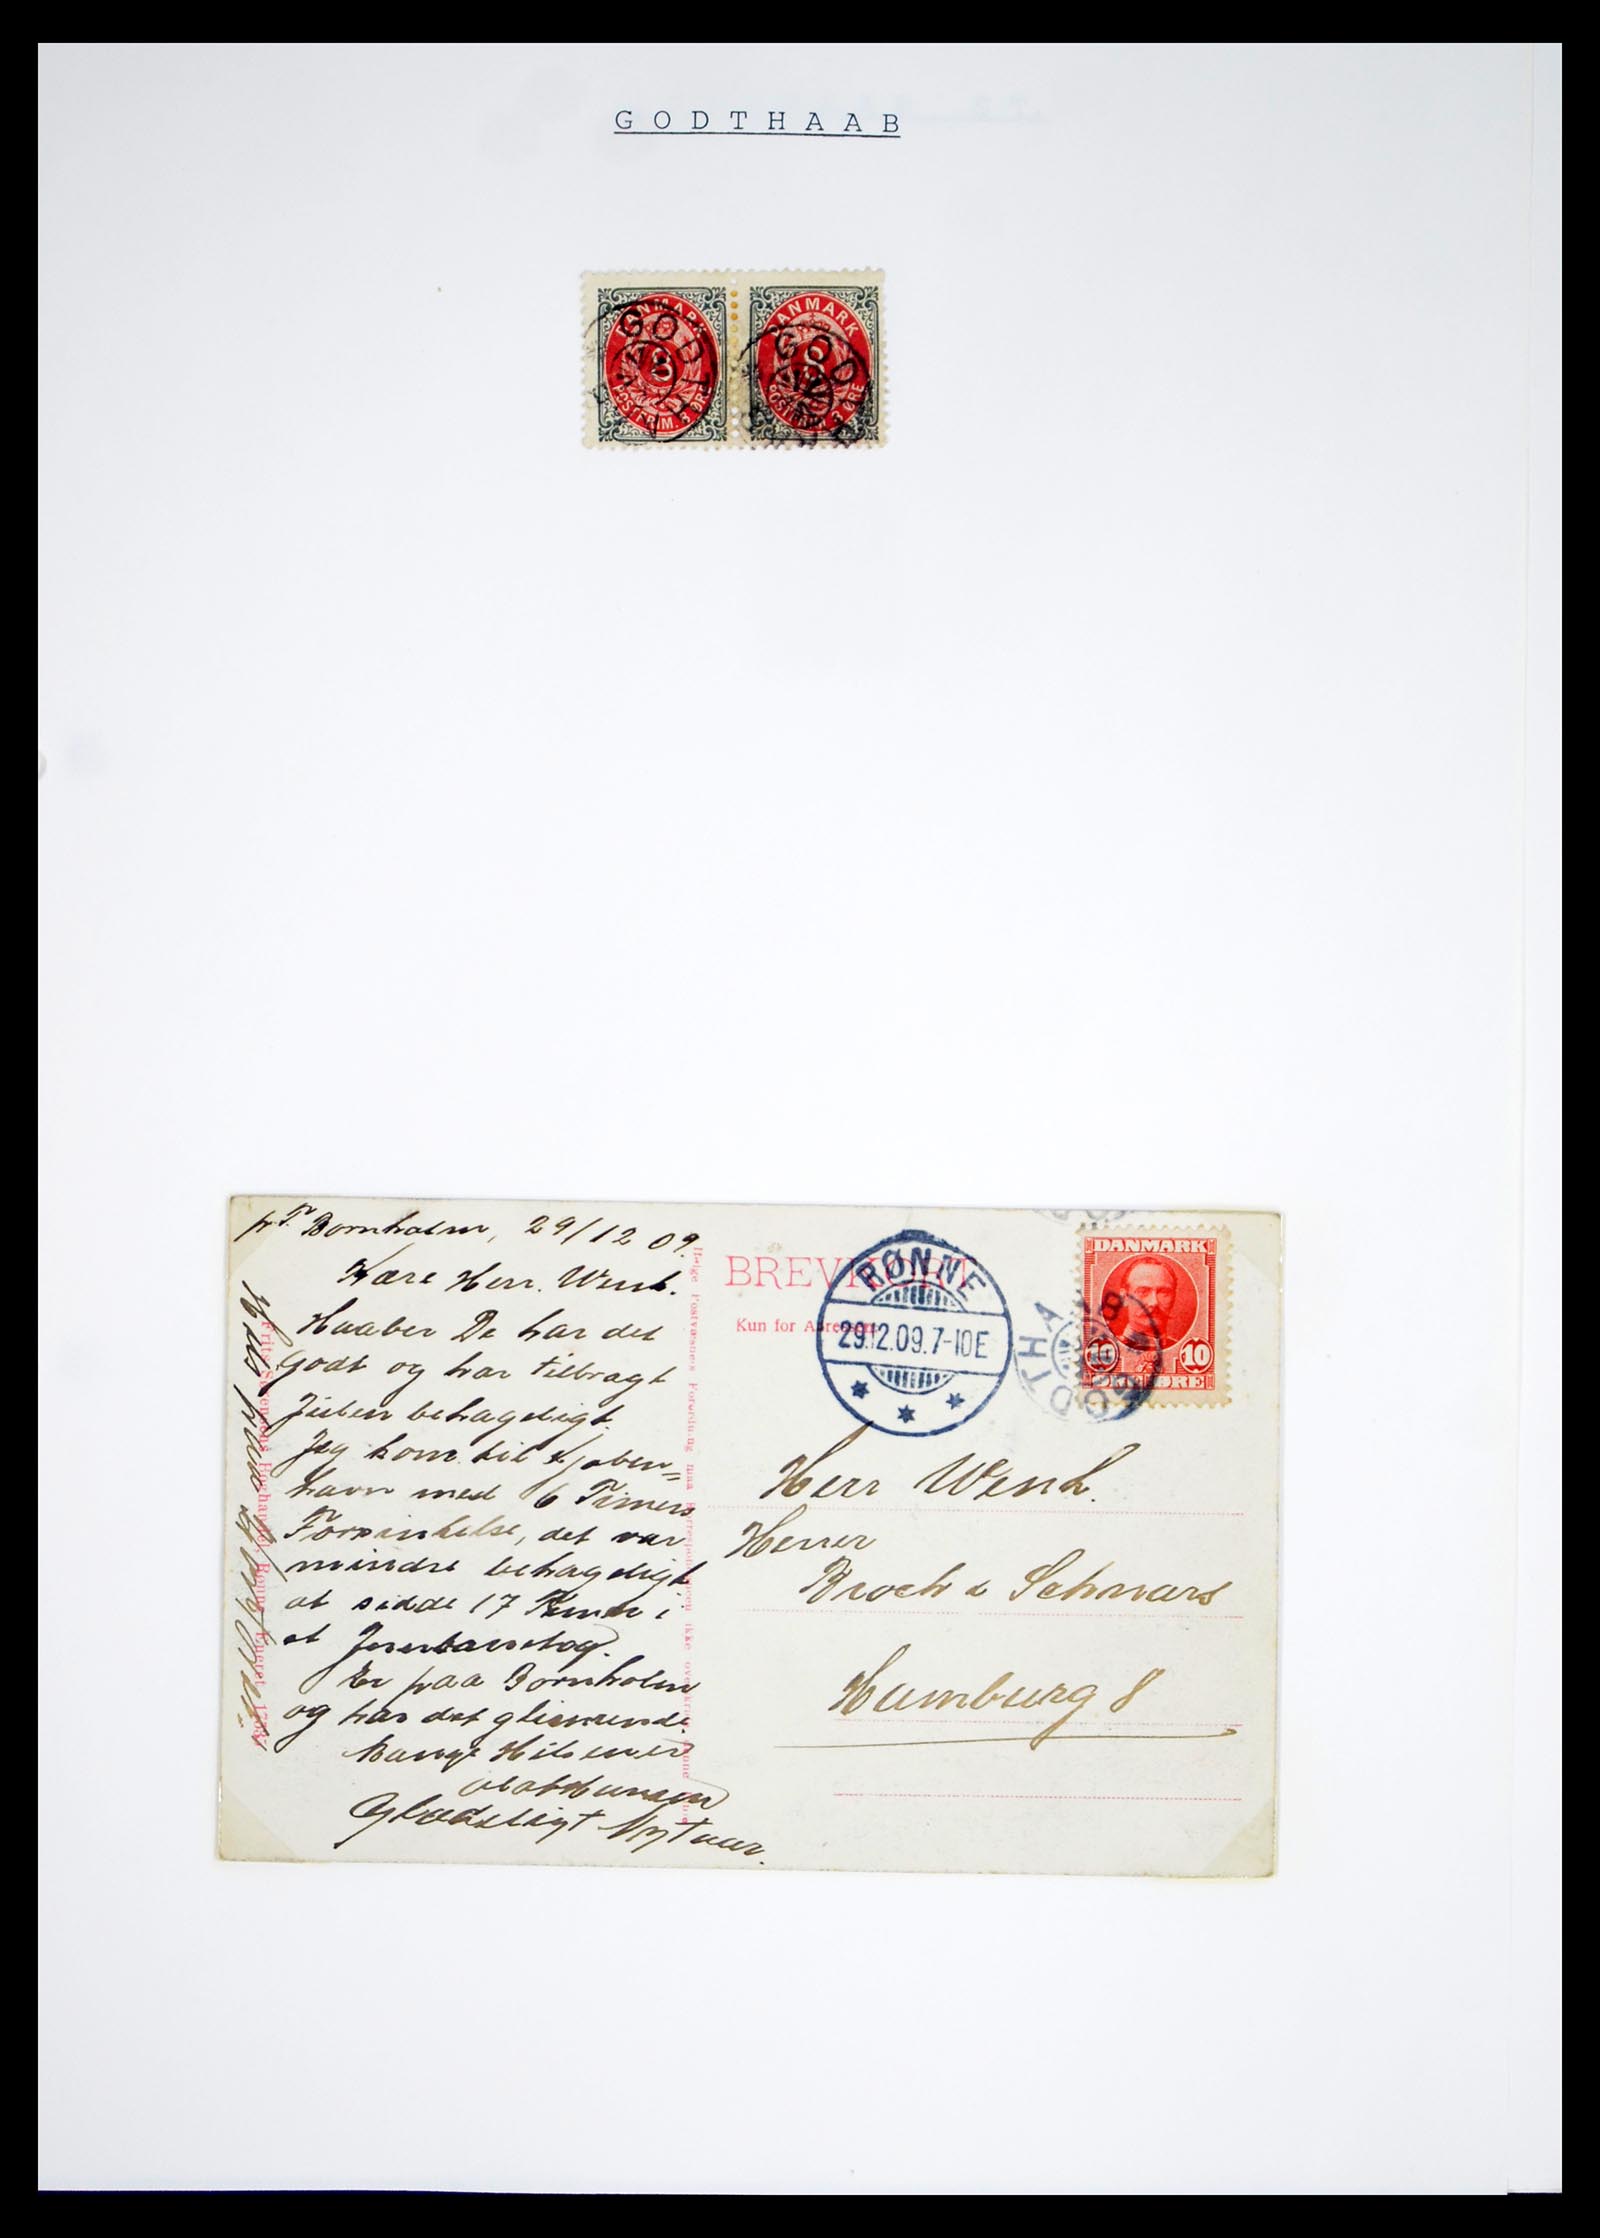 GODTHAAB
DANMARK DANMARK
8 8
POSTFRIM. 8 ØRE POSTFRIM. 8 ØRE
GODTH GODTH
pr. T. Bornholm, 29/12 09.
Kære Herr. Wenk.
Haaber De har det
Godt og har tilbragt
Julen behageligt.
Jeg kom til Kjøben=
havn med 6 Timers
Forsinkelse, det var
mindre behageligt
at sidde 17 Timer i
et Jernbanetog.
Er paa Bornholm
og har det glimrende.
Mange Hilsener
Glædeligt Nytaar.
Frits Sørensens Boghandel, Rønne. Eneret
BREVKORT
Kun for Adressen
RØNNE
29.12.09.7-10E
GODTHAAB
DANMARK
10 10
ØRE ØRE
Herr Wenk.
Herrer
Broch & Schwars
Hamburg 8